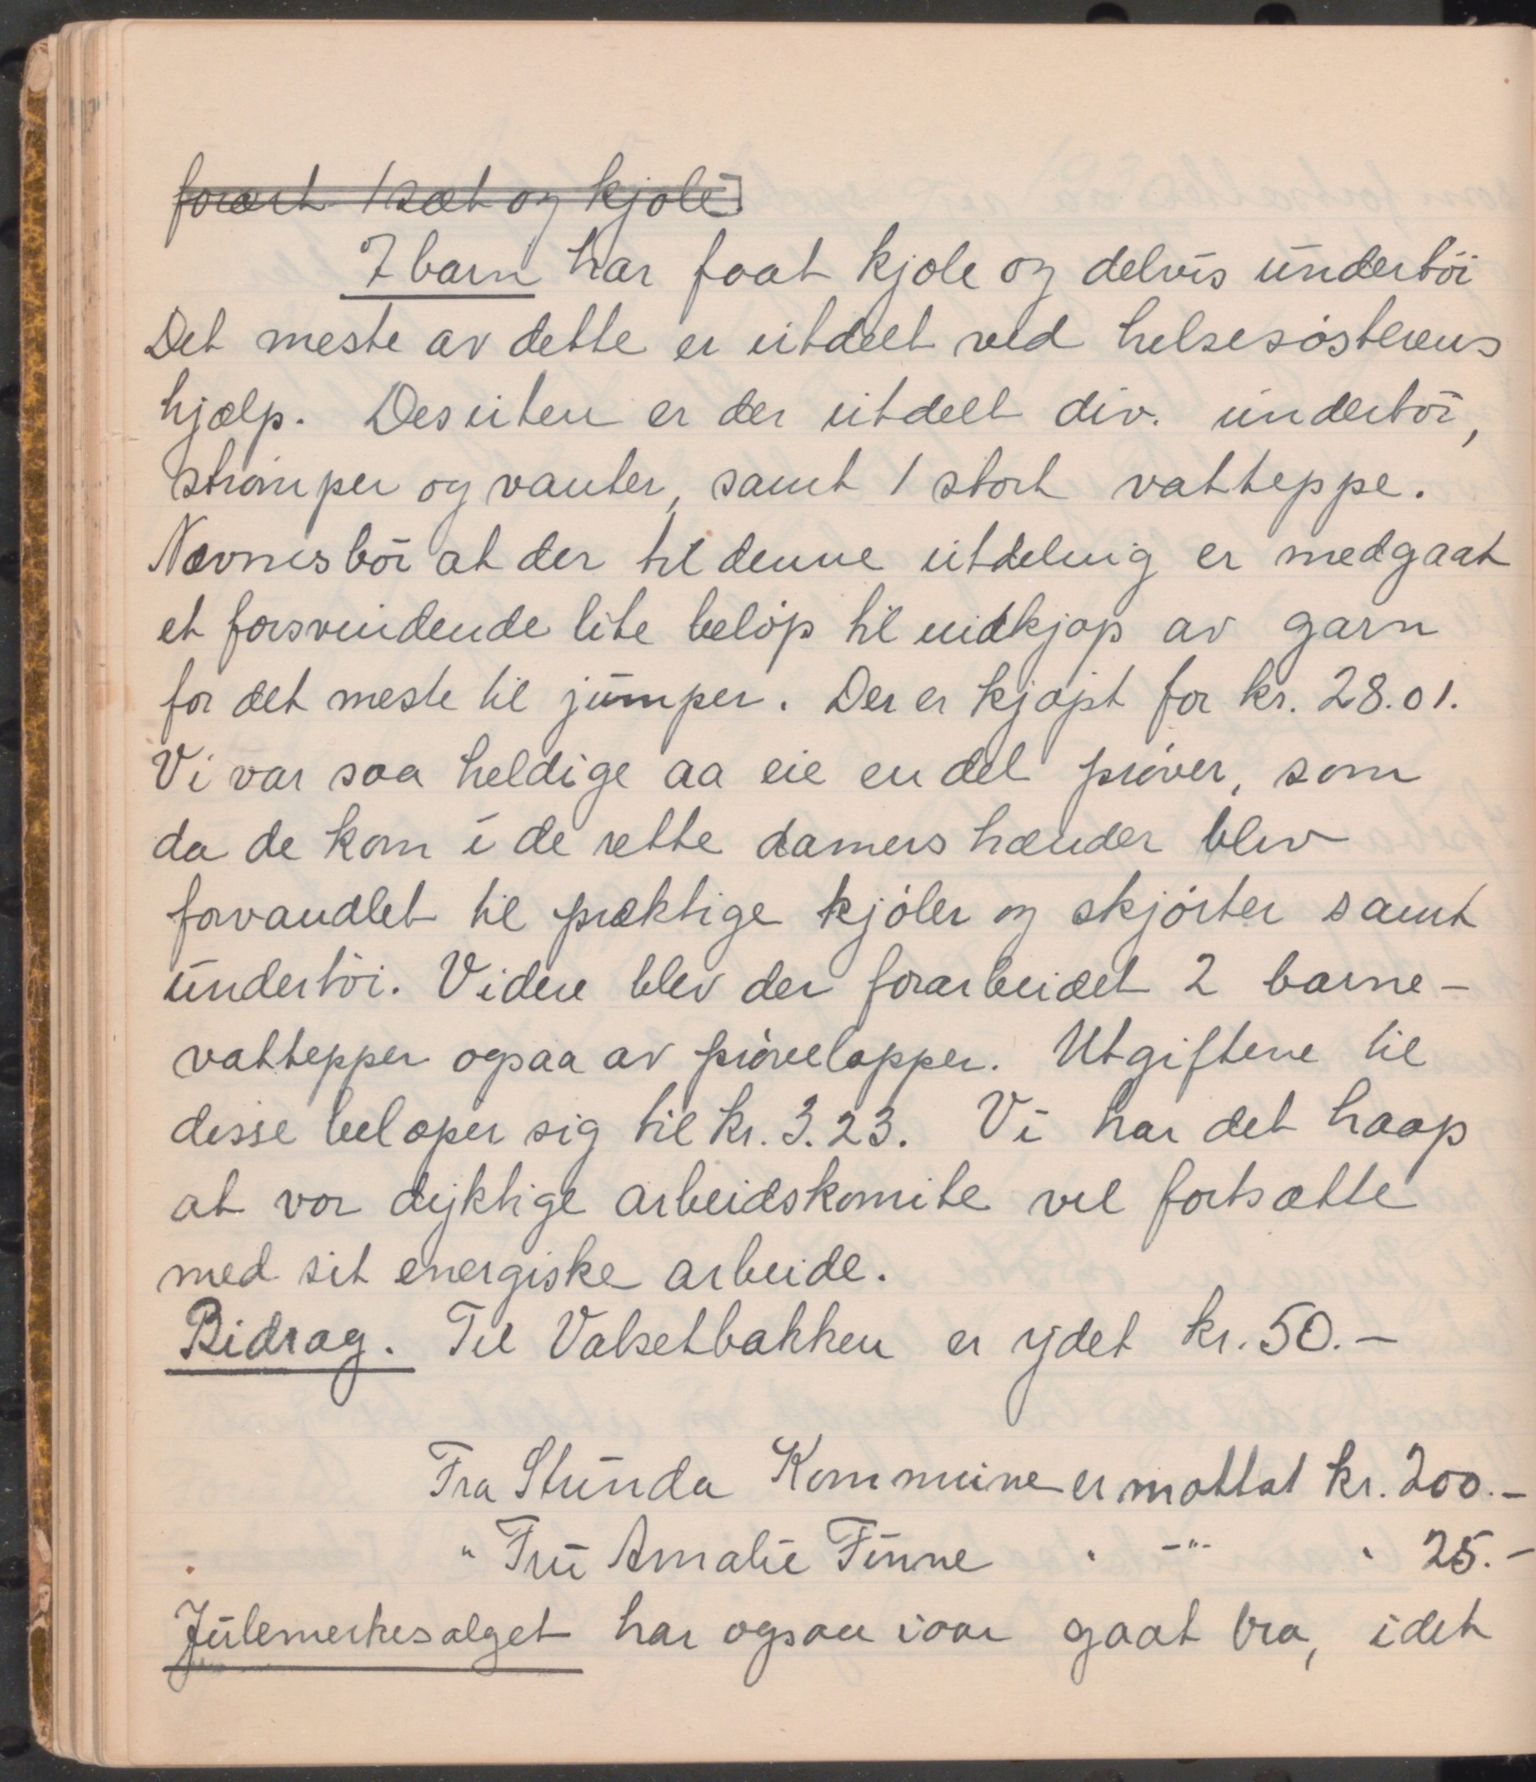 forært 1 sæt og kjole
7 barn har faat kjole og delvis undertöi
Det meste av dette er utdelt ved helsesøsterens
hjælp. Desuten er der utdelt div. undertöi,
strömper og vanter, samt 1 stort vatteppe.
Nævnes bör at der til denne utdeling er medgaat
et forsvindende lite beløp til indkjøp av garn
for det meste til jumper. Der er kjøpt for kr. 28.01.
Vi var saa heldige aa eie en del prøver, som
da de kom i de rette damers hænder blev
forvandlet til præktige kjóler og skjórter samt
undertöi. Videre blev der forarbeidet 2 barne-
vattepper ogsaa av prøvelapper. Utgiftene til
disse beløper sig til kr. 3.23. Vi har det haap
at vor dyktige arbeidskomite vil fortsætte
med sit energiske arbeide.
Bidrag. Til Valsetbakken er ydet kr. 50.-
Fra Strinda Kommune er mottat kr. 200.-
" Fru Amalie Finne " -"- " 25.-
Julemerkesalget har ogsaa iaar gaat bra, idet